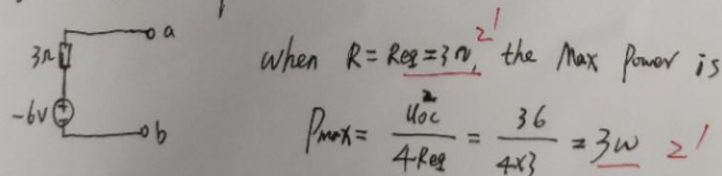 3Ω
-6V
a
b
when R = Req = 3Ω, 2' the Max Power is
Pmax = Uoc² / 4Req = 36 / 4×3 = 3w 2'